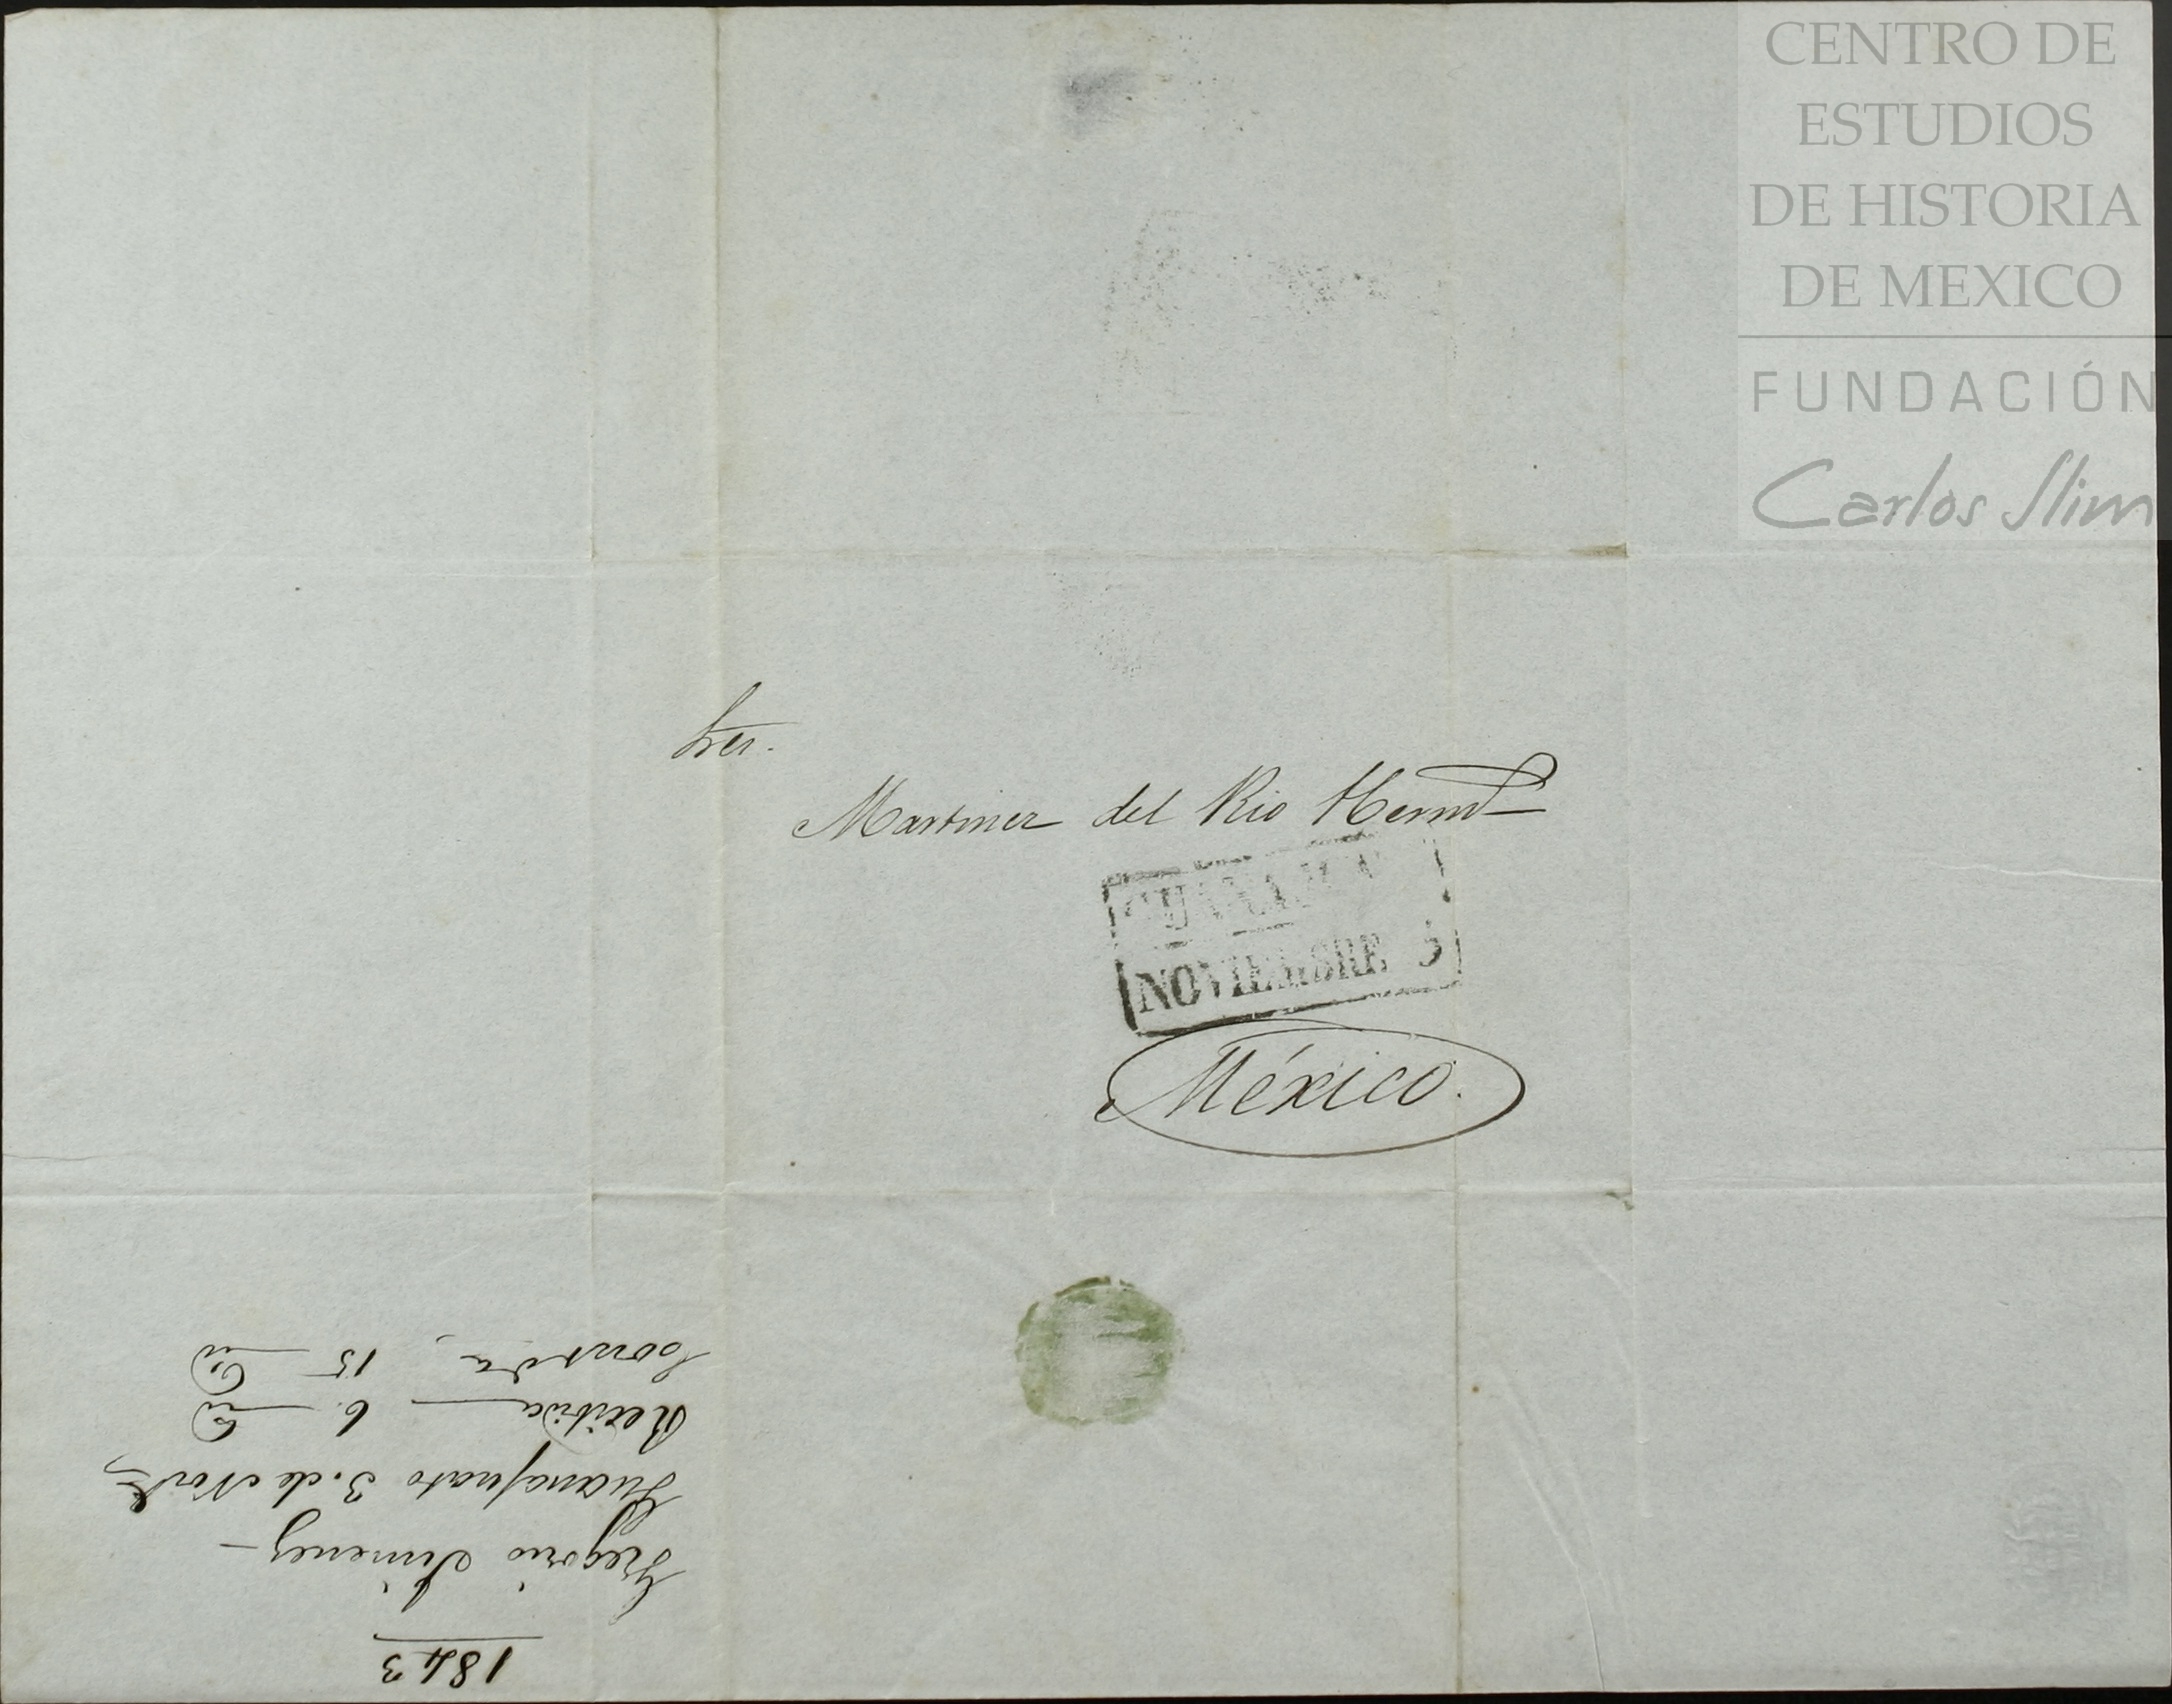 CENTRO DE
ESTUDIOS
DE HISTORIA
DE MEXICO
FUNDACIÓN
Carlos Slim
Sres.
Martinez del Rio Herms
NOVIEMBRE 3
México.
1843
Gregorio Jimenez
Guanajuato 3. de Nove
Recibida 6. id
Contda 15 id